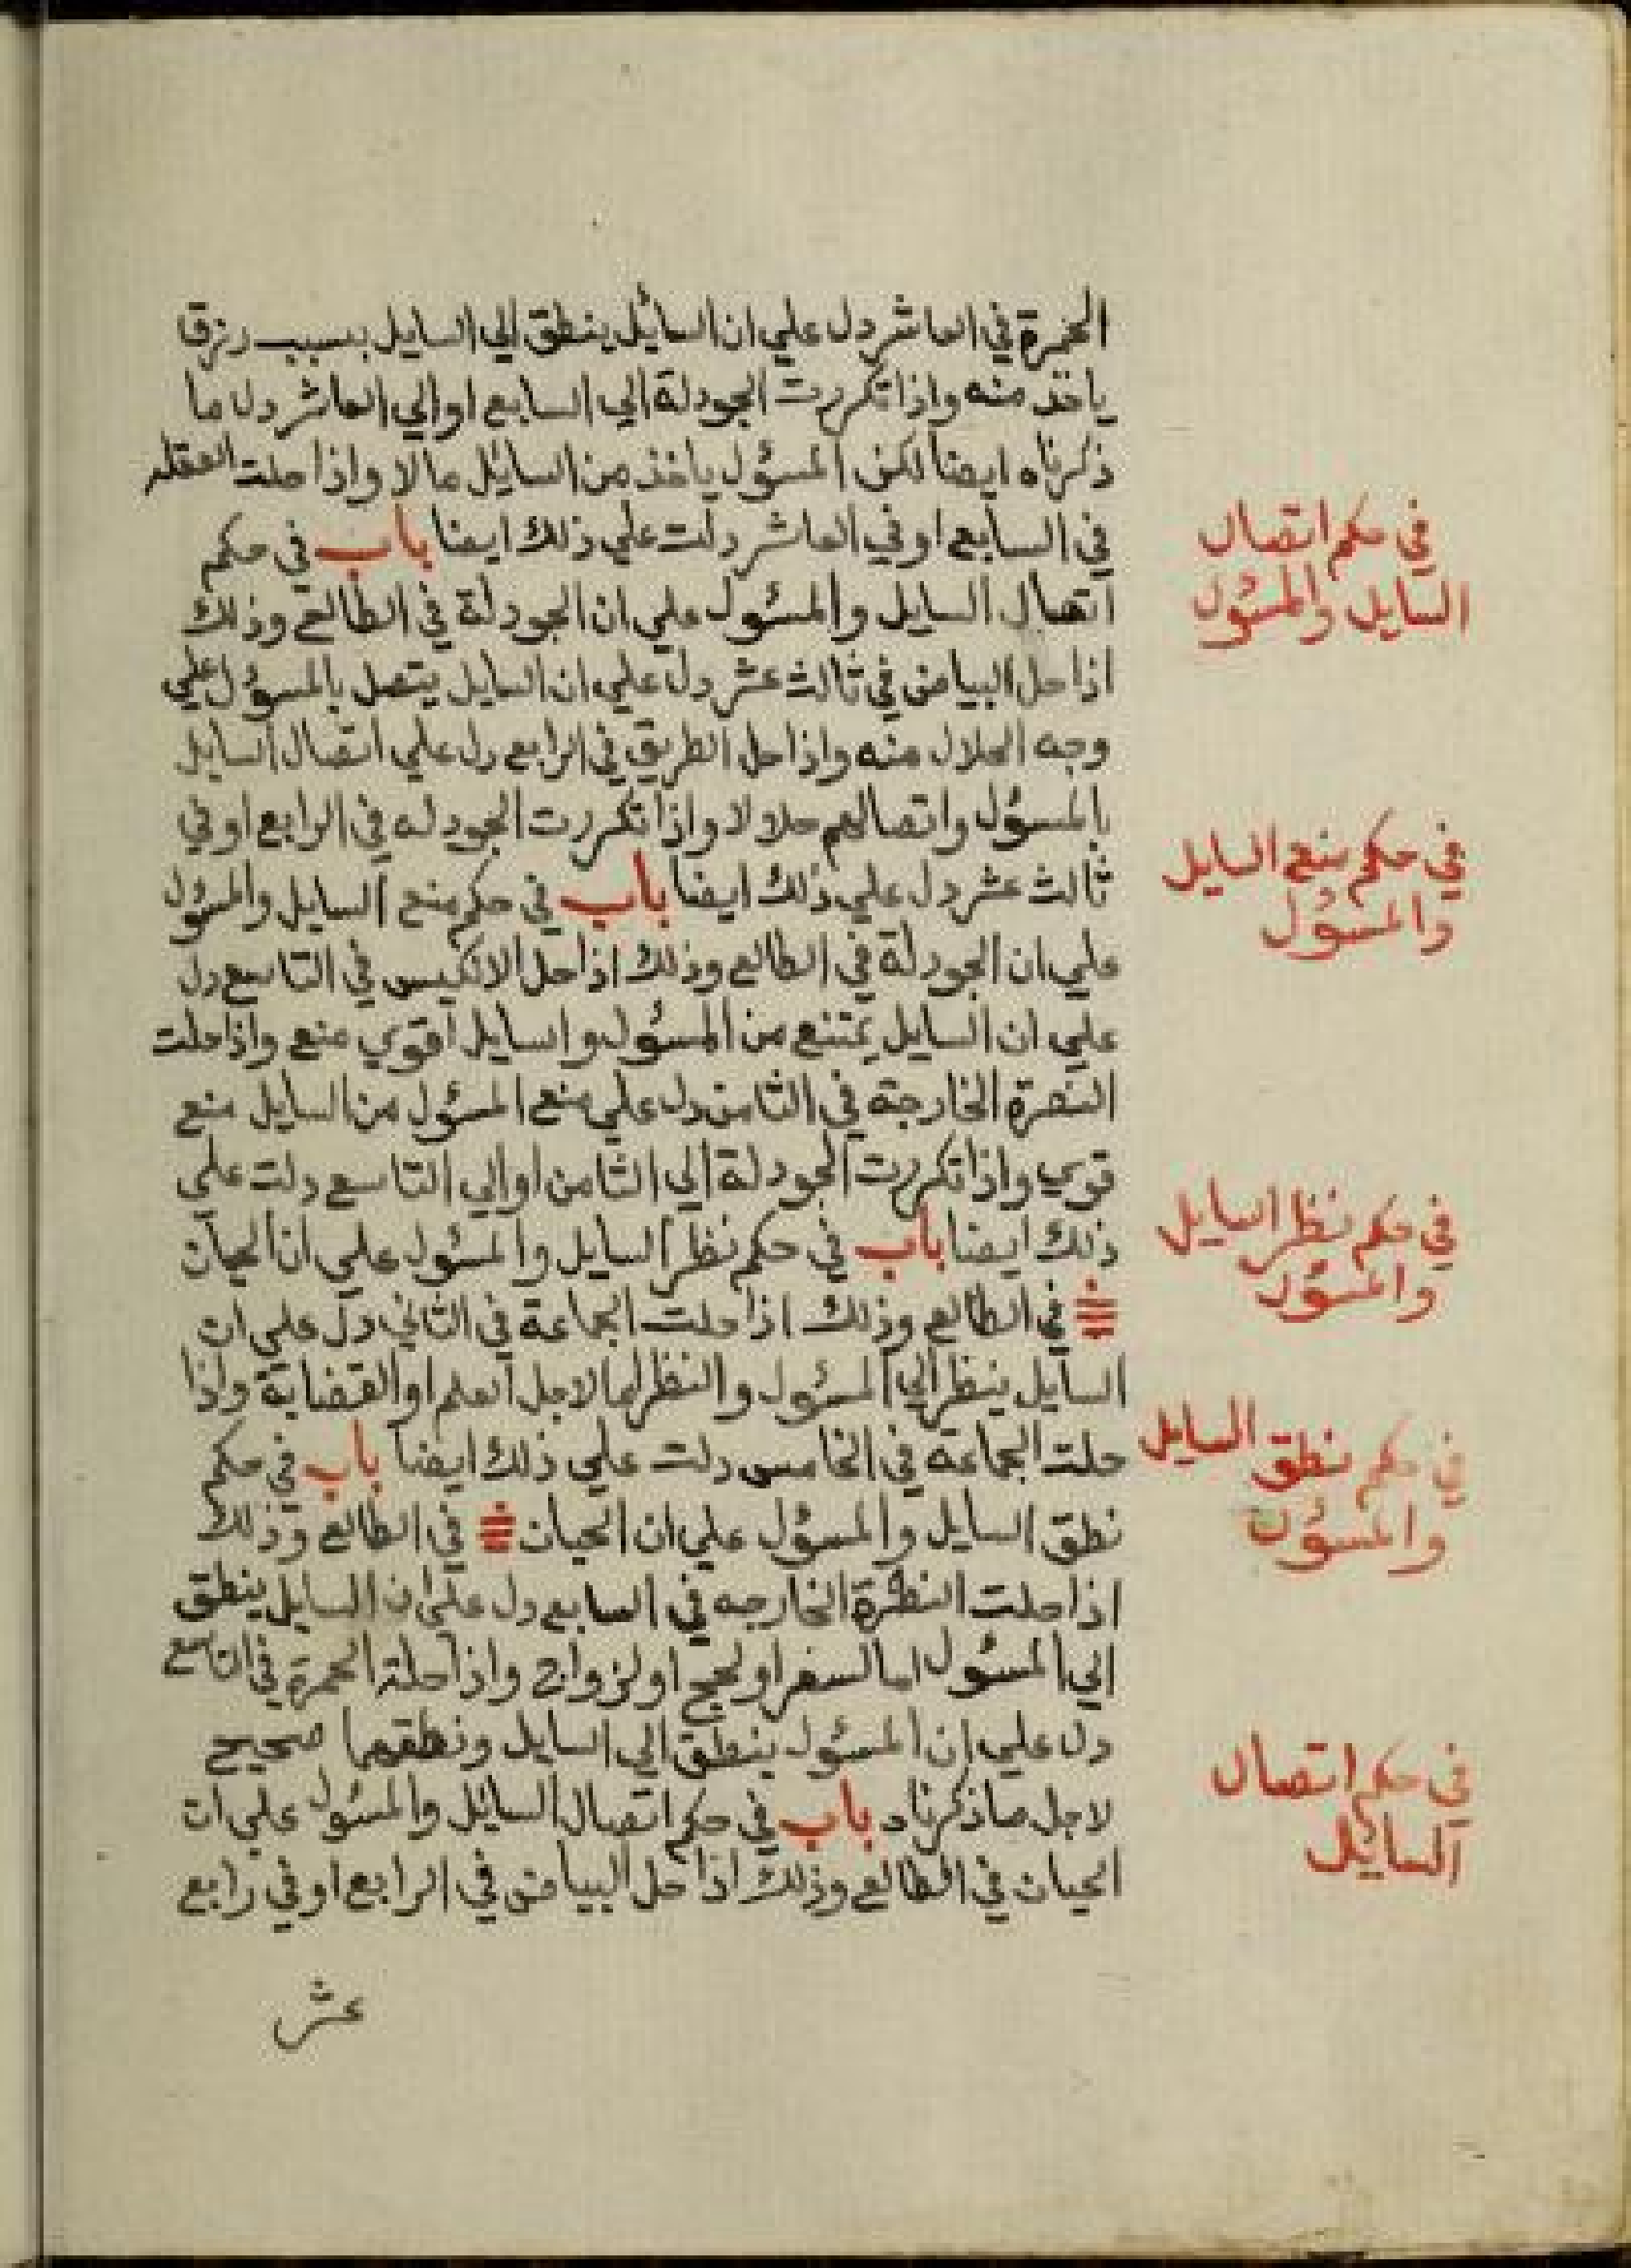 الحمرة في العاشر دل علي ان السائل ينطق الي السايل بسبب رزق
ياخذ منه واذا تكررت الجودلة الي السابع او الي العاشر دل ما
ذكرناه ايضا لكن المسؤل ياخذ من السائل مالا واذا حلت العقله
في السابع او في العاشر دلت علي ذلك ايضا باب في حكم
اتصال السايل والمسئول علي ان الجودلة في الطالع وذلك
اذا حل البياض في ثالث عشر دل علي ان السايل يتصل بالمسؤل علي
وجه الحلال منه واذا حل الطريق في الرابع دل علي اتصال السايل
بالمسؤل واتصالهم حلالا واذا تكررت الجودله في الرابع او في
ثالث عشر دل علي ذلك ايضا باب في حكم منع السايل والمسؤل
علي ان الجودلة في الطالع وذلك اذا حل الانكيس في التاسع دل
علي ان السايل يمتنع من المسؤل والسايل اقوي منع واذا حلت
النصرة الخارجة في الثامن دل علي منع المسئول من السايل منع
قوي واذا تكررت الجودلة الي الثامن او الي التاسع دلت علي
ذلك ايضا باب في حكم نظر السايل والمسئول علي ان الحيان
في الطالع وذلك اذا حلت الجماعة في الثاني دل علي ان
السايل ينظر الي المسئول والنظر لهما لاجل العلم او القضاية واذا
حلت الجماعة في الخامس دلت علي ذلك ايضا باب في حكم
نطق السايل والمسئول علي ان الحيان في الطالع وذلك
اذا حلت النظرة الخارجه في السابع دل علي ان السايل ينطق
الي المسئول اما لسفر او لحج او لزواج واذا حلة الحمرة في التاسع
دل علي ان المسئول ينطق الي السايل ونطقهما صحيح
لاجل ما ذكرناه باب في حكم اتصال السائل والمسئول علي ان
الحيان في الطالع وذلك اذا حل البياض في الرابع او في رابع
عشر
في حكم اتصال
السايل والمسؤل
في حكم منع السايل
والمسؤل
في حكم نظر السايل
والمسؤل
في حكم نطق السايل
والمسؤل
في حكم اتصال
السايل